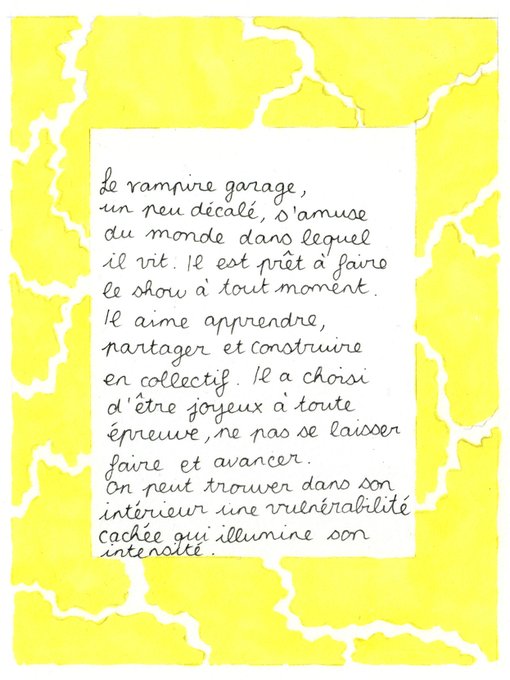 Le vampire garage,
un peu décalé, s'amuse
du monde dans lequel
il vit. Il est prêt à faire
le show à tout moment.
Il aime apprendre,
partager et construire
en collectif. Il a choisi
d'être joyeux à toute
épreuve, ne pas se laisser
faire et avancer.
On peut trouver dans son
intérieur une vulnérabilité
cachée qui illumine son
intensité.